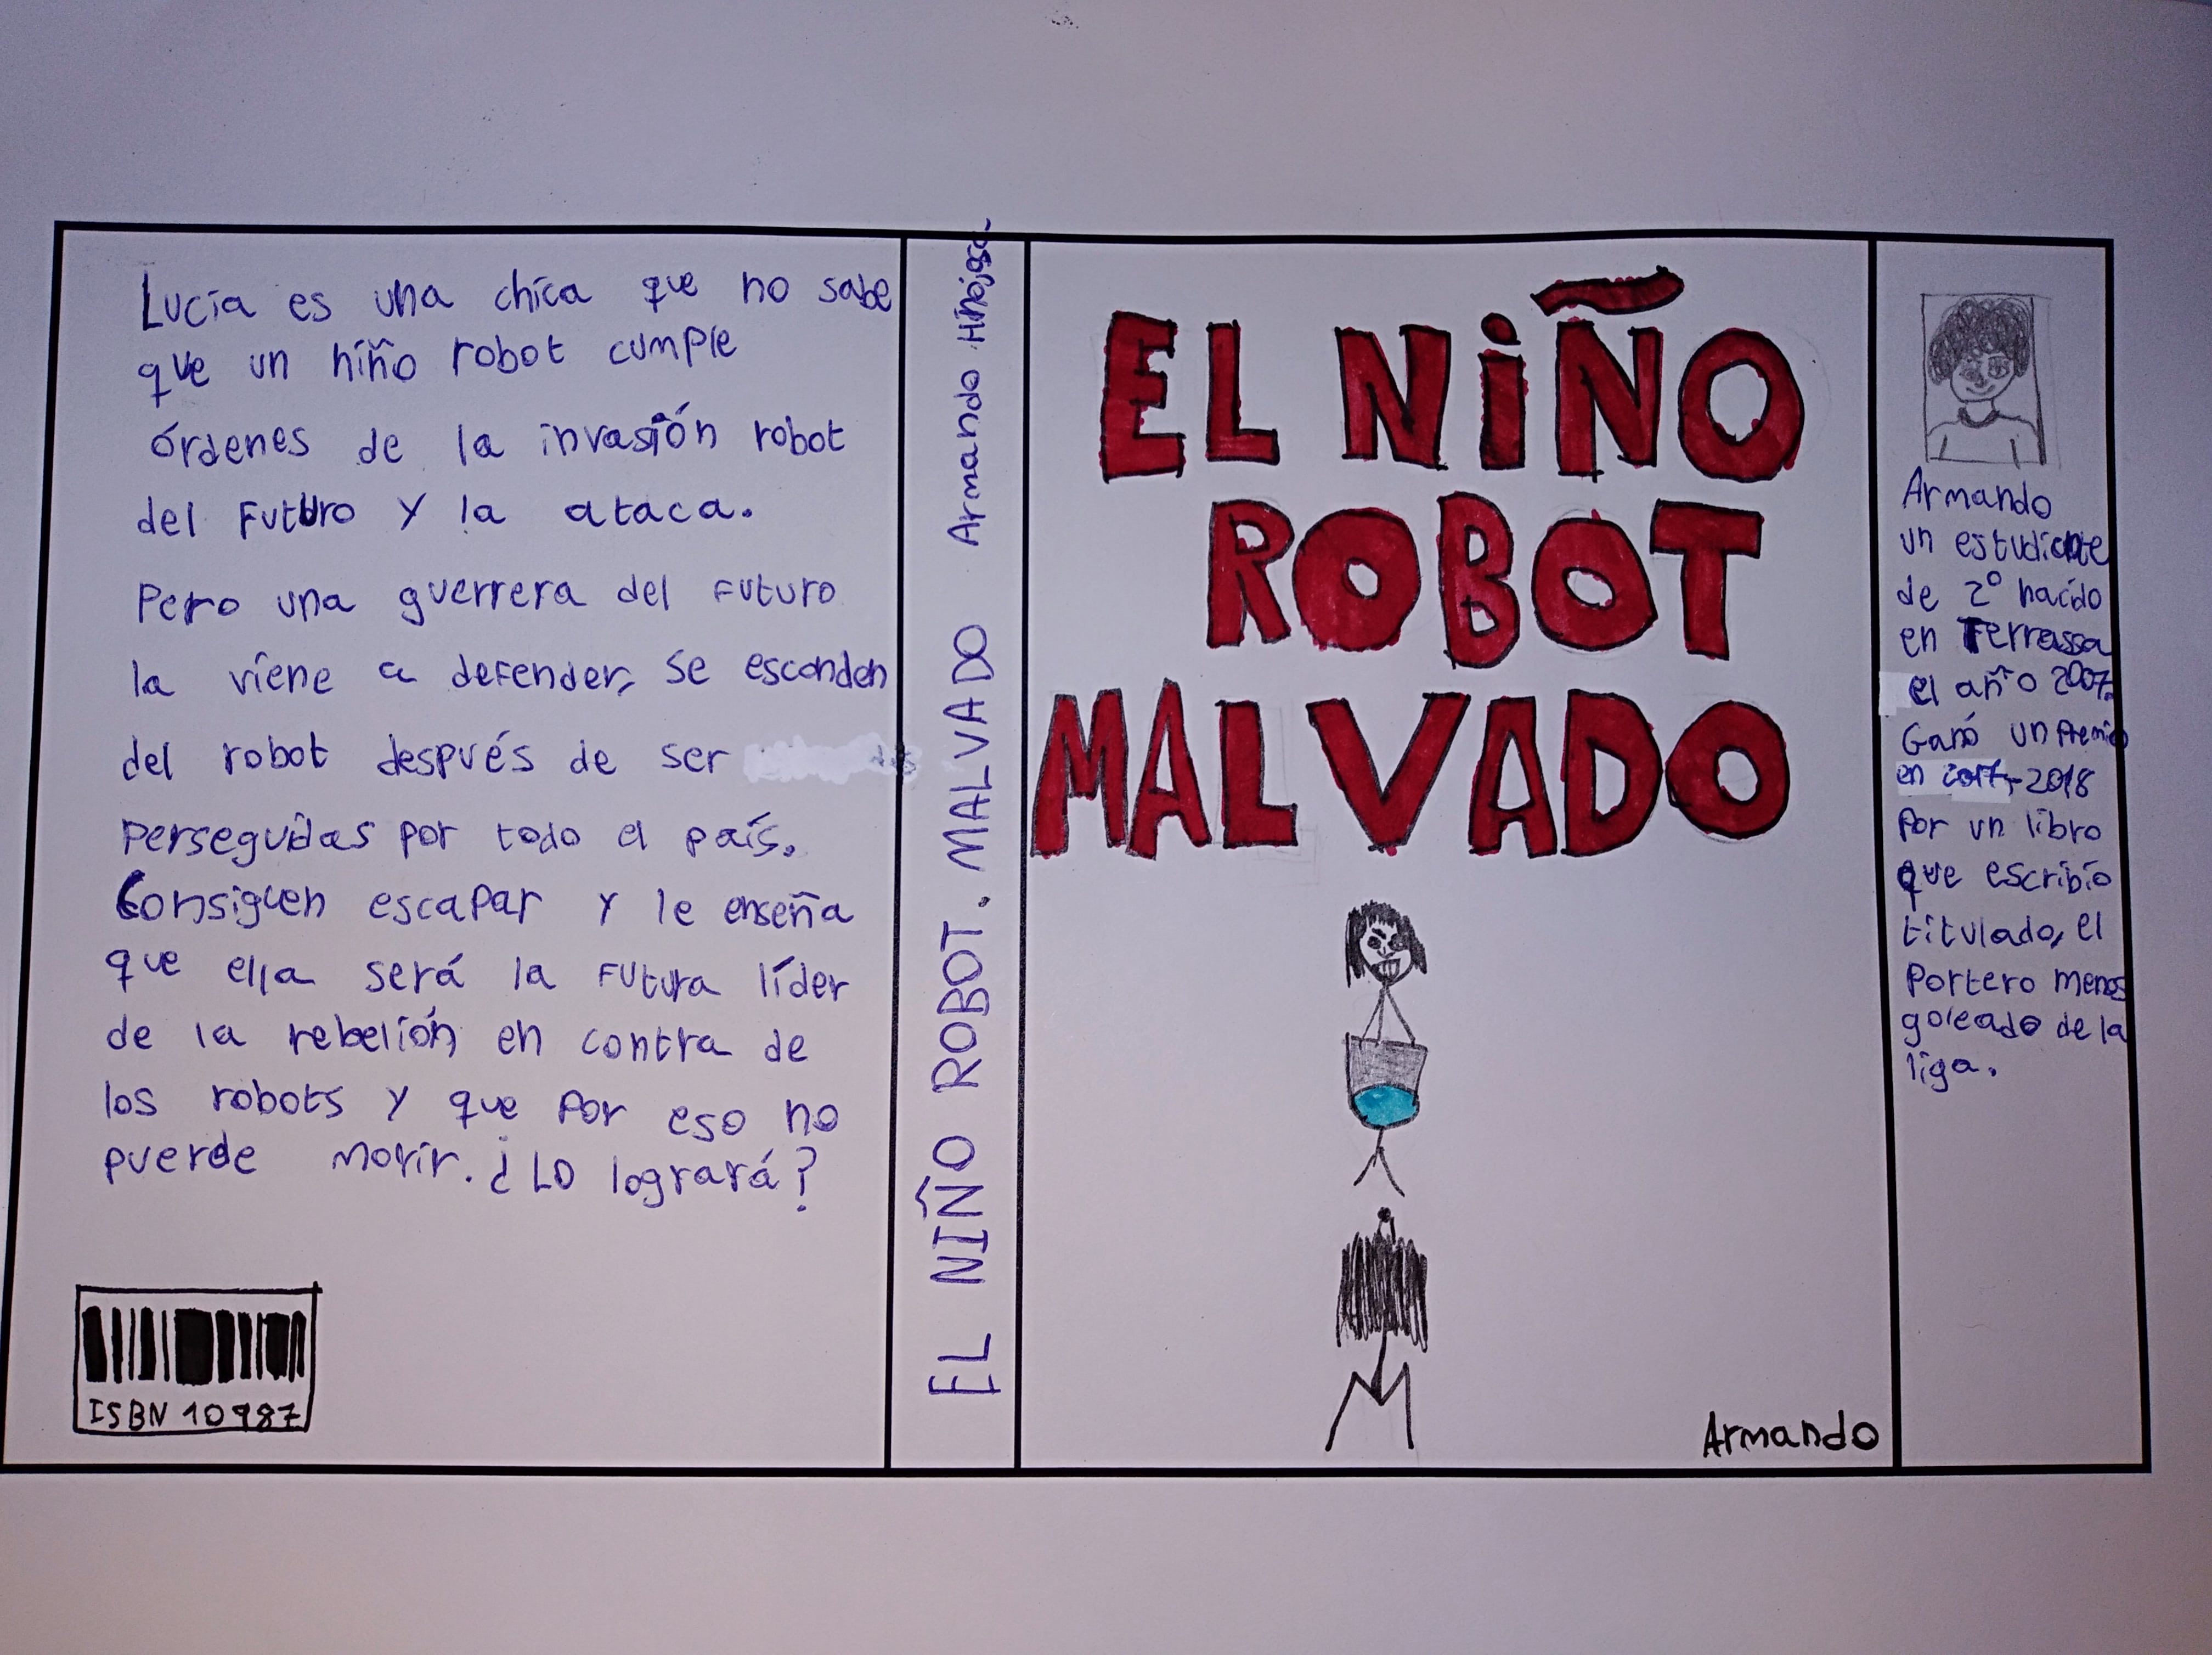 Lucía es una chica que no sabe
que un niño robot cumple
órdenes de la invasión robot
del futuro y la ataca.
Pero una guerrera del futuro
la viene a defender, se esconden
del robot después de ser
perseguidas por todo el país.
Consiguen escapar y le enseña
que ella será la futura líder
de la rebelión en contra de
los robots y que por eso no
puerde morir. ¿Lo logrará?
ISBN 10987
EL NIÑO ROBOT. MALVADO Armando Hinojosa
EL NIÑO
ROBOT
MALVADO
Armando
Armando
un estudiante
de 2º nacido
en Terrassa
el año 2007.
Ganó un Premio
en 2017-2018
Por un libro
que escribío
titulado, el
Portero menos
goleado de la
liga.